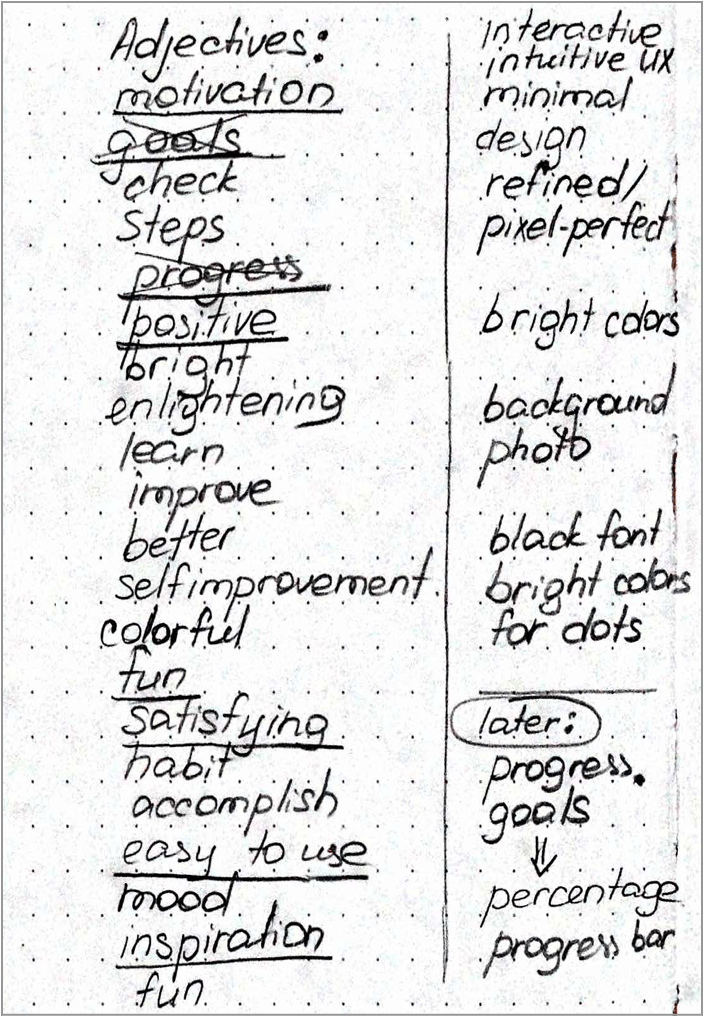 Adjectives:
motivation
goals
check
Steps
progress
positive
bright
enlightening
learn
improve
better
selfimprovement
colorful
fun
Satisfying
habit
accomplish
easy to use
mood
inspiration
fun
interactive
intuitive UX
minimal
design
refined/
pixel-perfect
bright colors
background
photo
black font
bright colors
for dots
later:
progress.
goals
⇓
percentage
progress bar